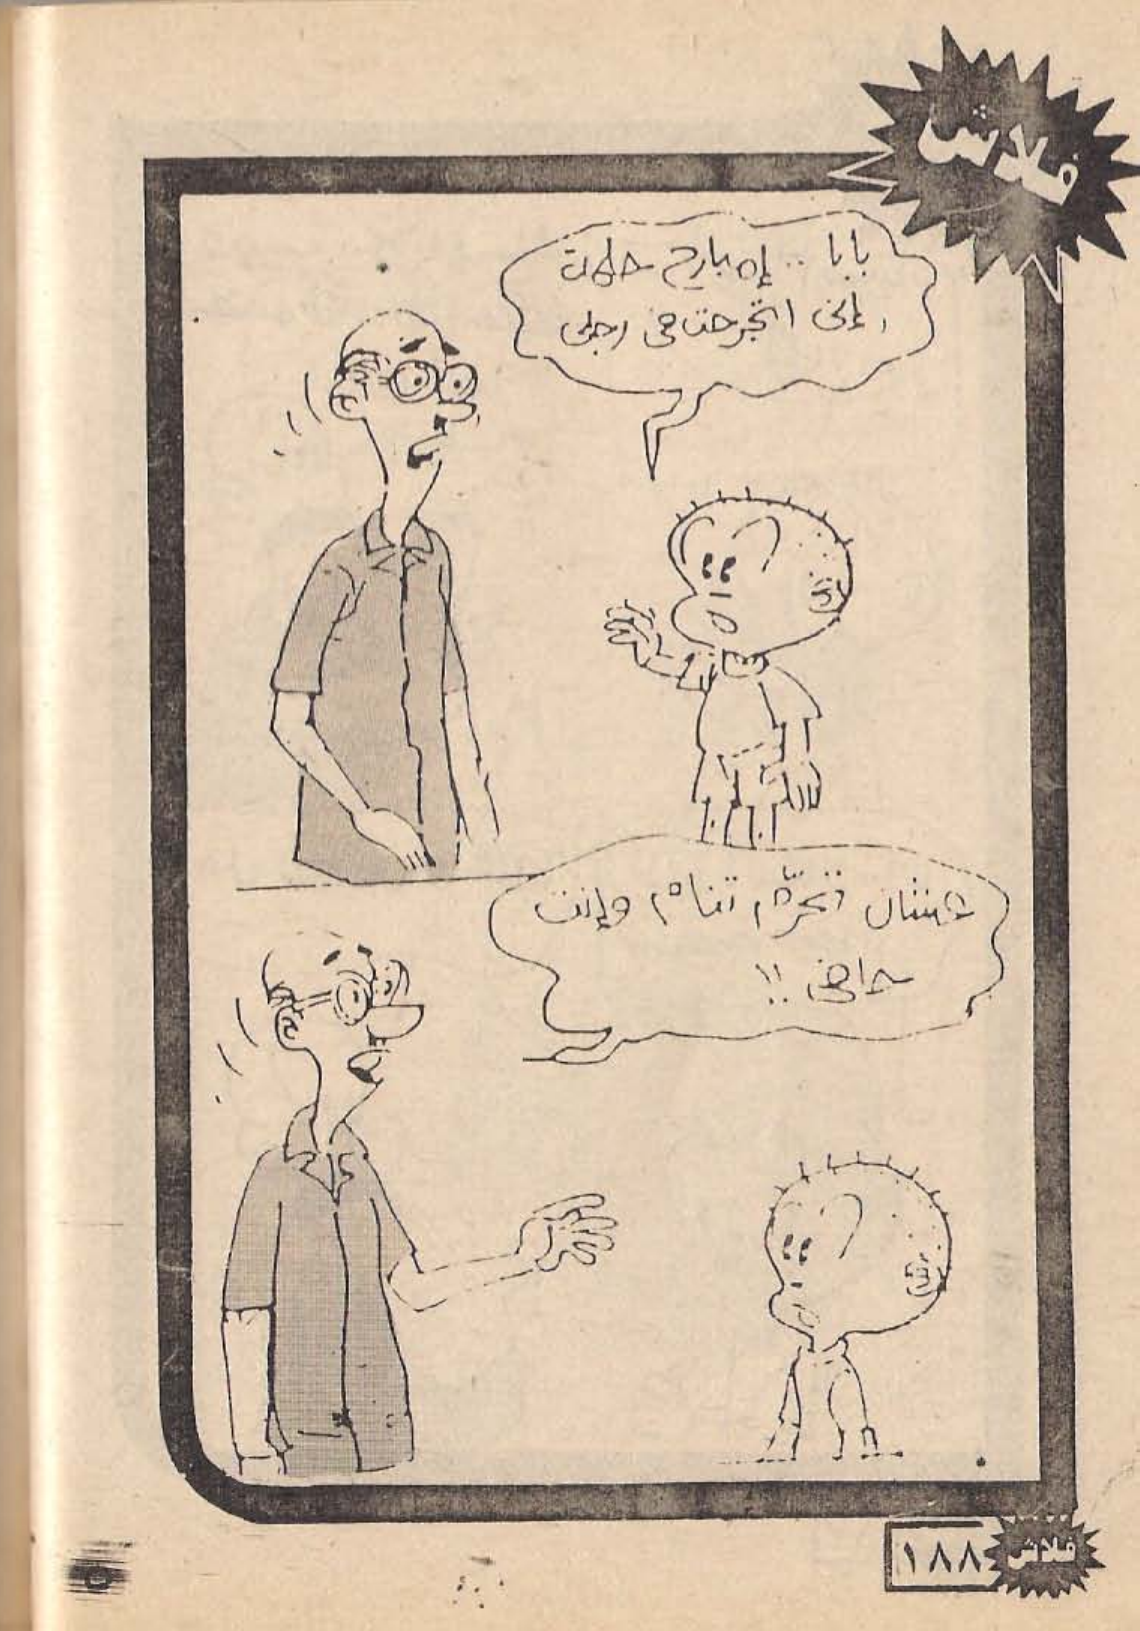 فلاش
بابا .. إمبارح حلمت
إنى اتجرحت فى رجلى
عشان تحرّم تنام وإنت
حافى !!
١٨٨ فلاش